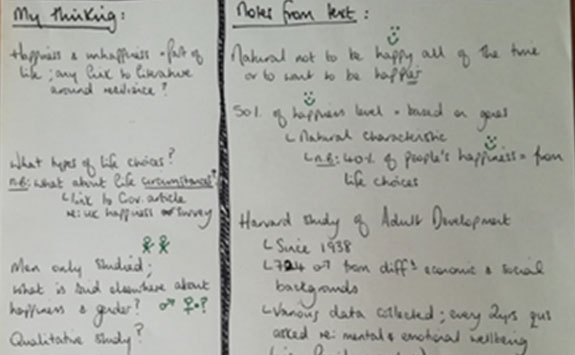 My thinking:
Happiness & unhappiness = part of
life; any link to literature
around resilience?
What types of life choices?
n.B: what about life circumstances?
↳ link to Gov. article
re: UK happiness survey
Men only studied;
what is said elsewhere about
happiness & gender? ♂ ♀?
Qualitative study?
Notes from text:
Natural not to be happy all of the time
or to want to be happier
50% of happiness level = based on genes
↳ Natural characteristic
↳ n.B: 40% of people's happiness = from
life choices
Harvard Study of Adult Development
↳ Since 1938
↳ 724 ♂ from diff't economic & social
backgrounds
↳ Various data collected; every 2yrs qus
asked re: mental & emotional wellbeing